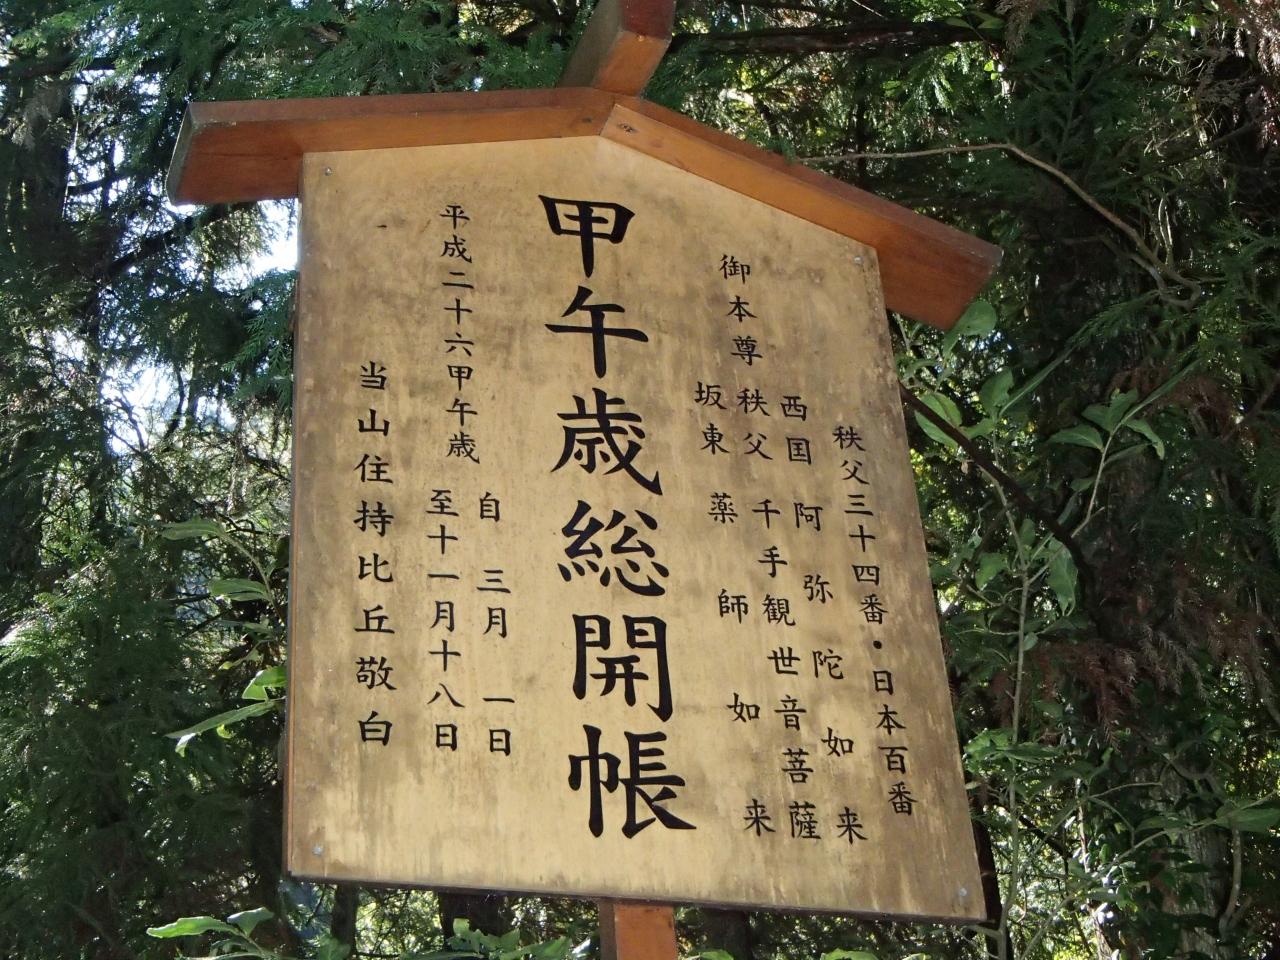 秩父三十四番・日本百番
西国 阿弥陀如来
御本尊 秩父 千手観世音菩薩
坂東 薬師如来
甲午歳総開帳
自 三月 一日
平成二十六甲午歳
至十一月十八日
当山住持比丘敬白